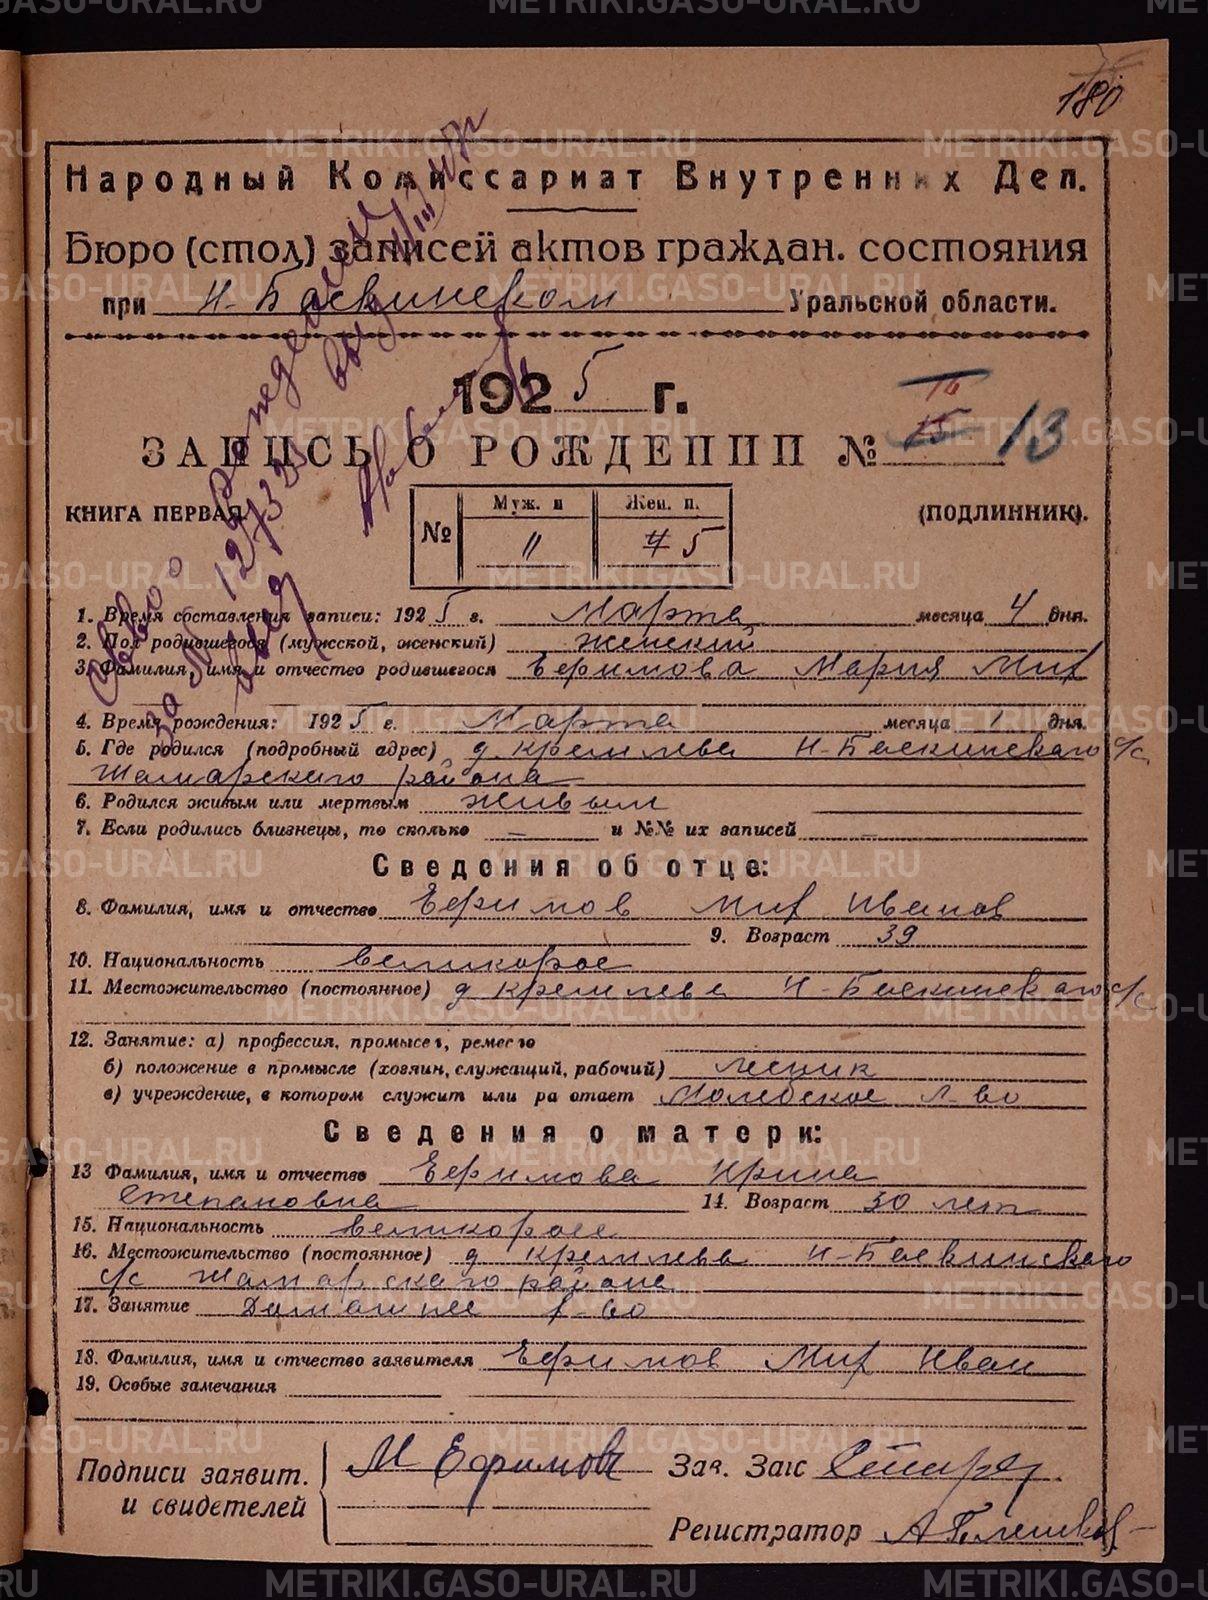 180
Народный Комиссариат Внутренних Дел.
Бюро (стол) записей актов граждан. состояния
при Н-Баскинском Уральской области.
1925 г.
14
ЗАПИСЬ О РОЖДЕНИИ № 15 13
КНИГА ПЕРВАЯ (ПОДЛИННИК).
№ Муж. п Жен. п.
" 4 5
1. Время составления записи: 1925 г. Марта месяца 4 дня.
2. Пол родившегося (мужской, женский) женский
3. Фамилия, имя и отчество родившегося Ефимова Мария Мих
4. Время рождения: 1925 г. Марта месяца 1 дня.
5. Где родился (подробный адрес) д Кремлева Н-Баскинского с/с
Шамарского района
6. Родился живым или мертвым живым
7. Если родились близнецы, то сколько – и №№ их записей –
Сведения об отце:
8. Фамилия, имя и отчество Ефимов Мих Иванов
9. Возраст 39
10. Национальность великорос
11. Местожительство (постоянное) д Кремлева Н-Баскинского с/с
12. Занятие: а) профессия, промысел, ремесло
б) положение в промысле (хозяин, служащий, рабочий) лесник
в) учреждение, в котором служит или работает Молебское л-во
Сведения о матери:
13 Фамилия, имя и отчество Ефимова Ирина
Степановна 14. Возраст 30 лет
15. Национальность великорос
16. Местожительство (постоянное) д Кремлева Н-Баскинского
с/с Шамарского района
17. Занятие Домашнее х-во
18. Фамилия, имя и отчество заявителя Ефимов Мих Иван
19. Особые замечания
Подписи заявит. и свидетелей М Ефимов Зав. Загс
Регистратор